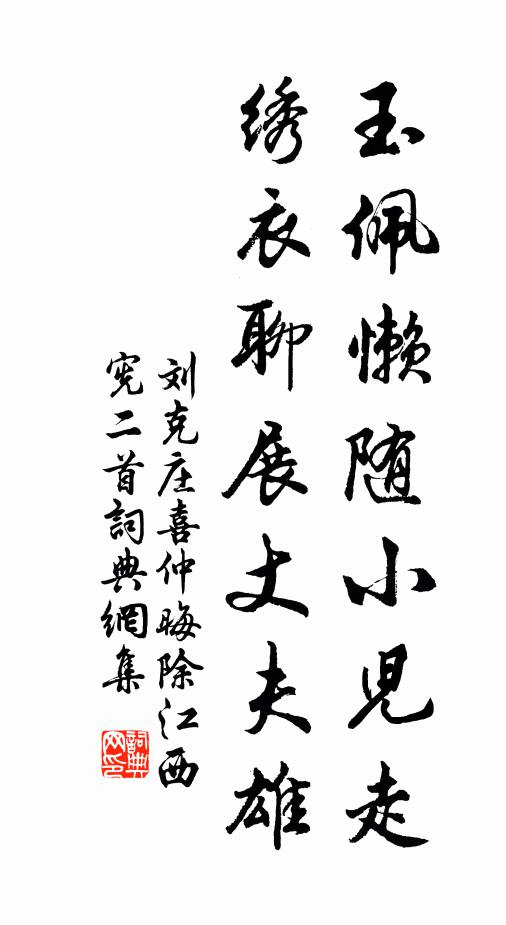 玉佩懒随小児走
绣衣聊展丈夫雄
刘克庄喜仲晦除江西
宪二首詞典網集
詞典网印